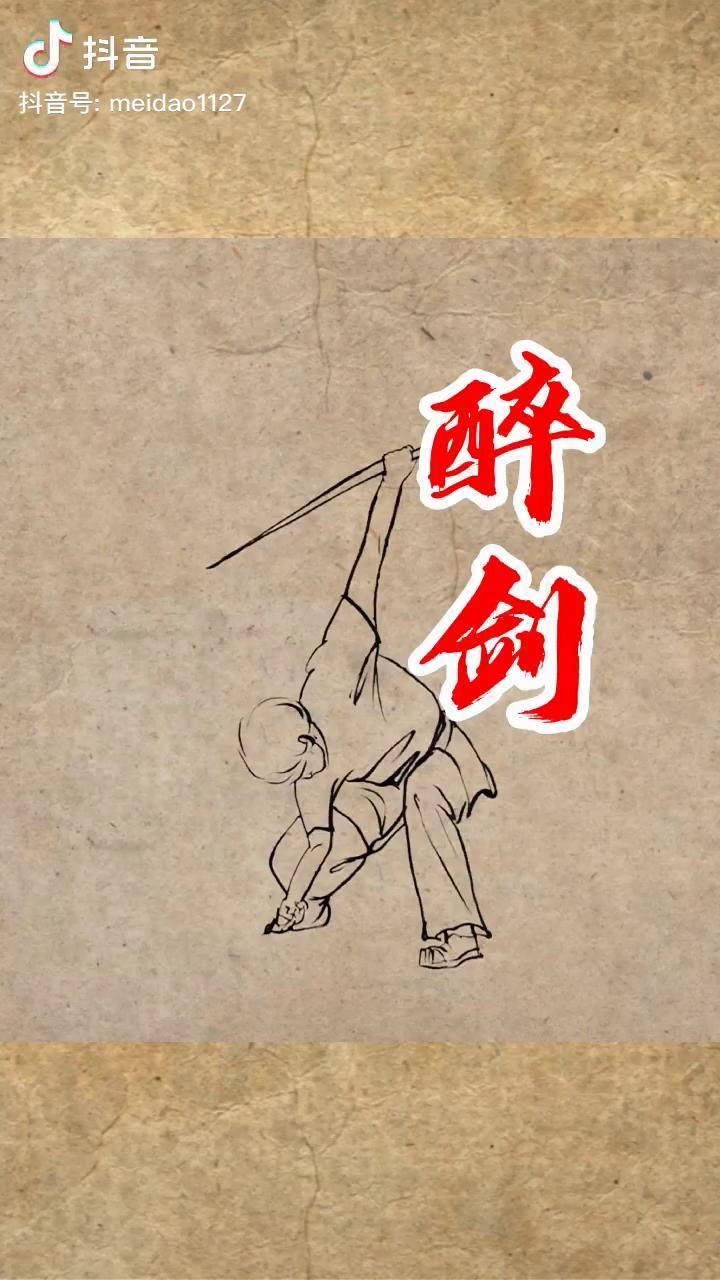 抖音
抖音号: meidao1127
醉
剑